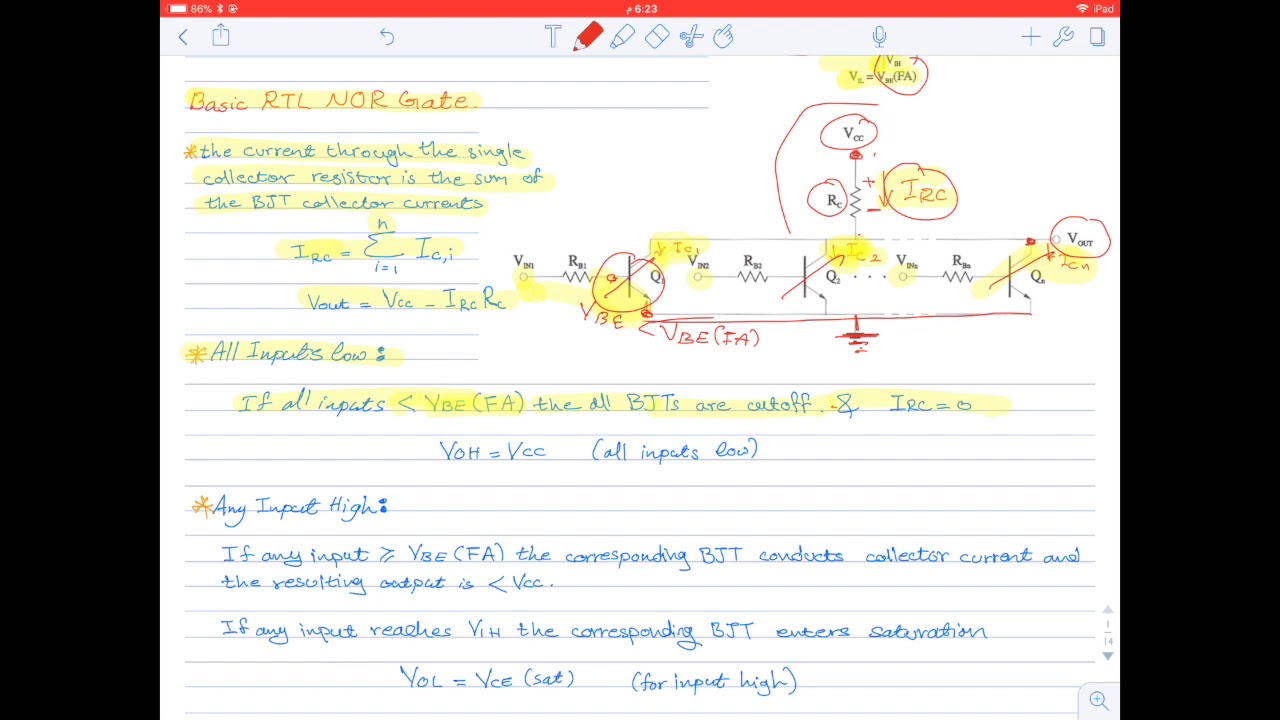 86%
6:23 م
iPad
V_IH
V_IL = V_BE(FA)
Basic RTL NOR Gate.
V_CC
*the current through the single
collector resistor is the sum of
the BJT collector currents
R_C
+
−
I_RC
I_RC = Σ_{i=1}^{n} I_C,i
V_OUT
V_IN1
R_B1
Ic1
Q_1
V_IN2
R_B2
Ic2
Q_2
. . .
V_INn
R_Bn
Icn
Q_n
Vout = Vcc − I_RC R_C
V_BE < V_BE(FA)
*All Inputs low:
If all inputs < V_BE(FA) the all BJTs are cutoff. & I_RC = 0
V_OH = V_CC (all inputs low)
*Any Input High:
If any input ≥ V_BE(FA) the corresponding BJT conducts collector current and
the resulting output is < Vcc.
If any input reaches V_IH the corresponding BJT enters saturation
V_OL = V_CE (sat) (for input high)
1
14